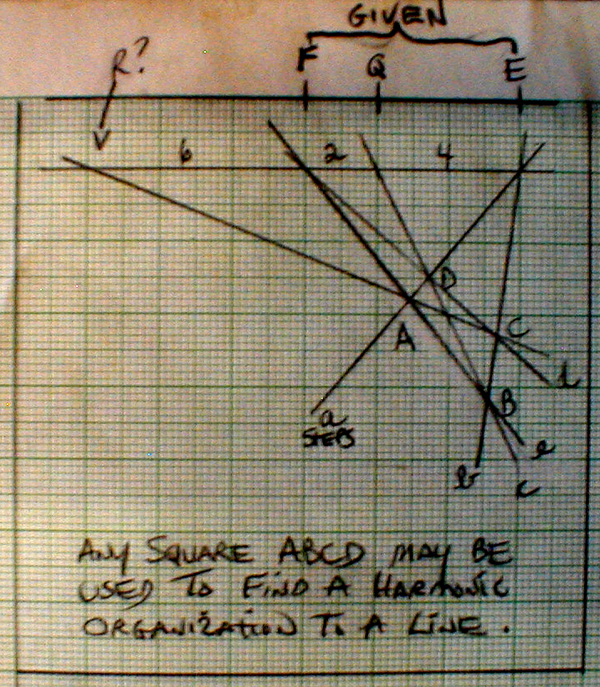 GIVEN
F Q E
R?
6 2 4
D
A C
d
B
a
STEPS
e
b c
ANY SQUARE ABCD MAY BE
USED TO FIND A HARMONIC
ORGANIZATION TO A LINE.